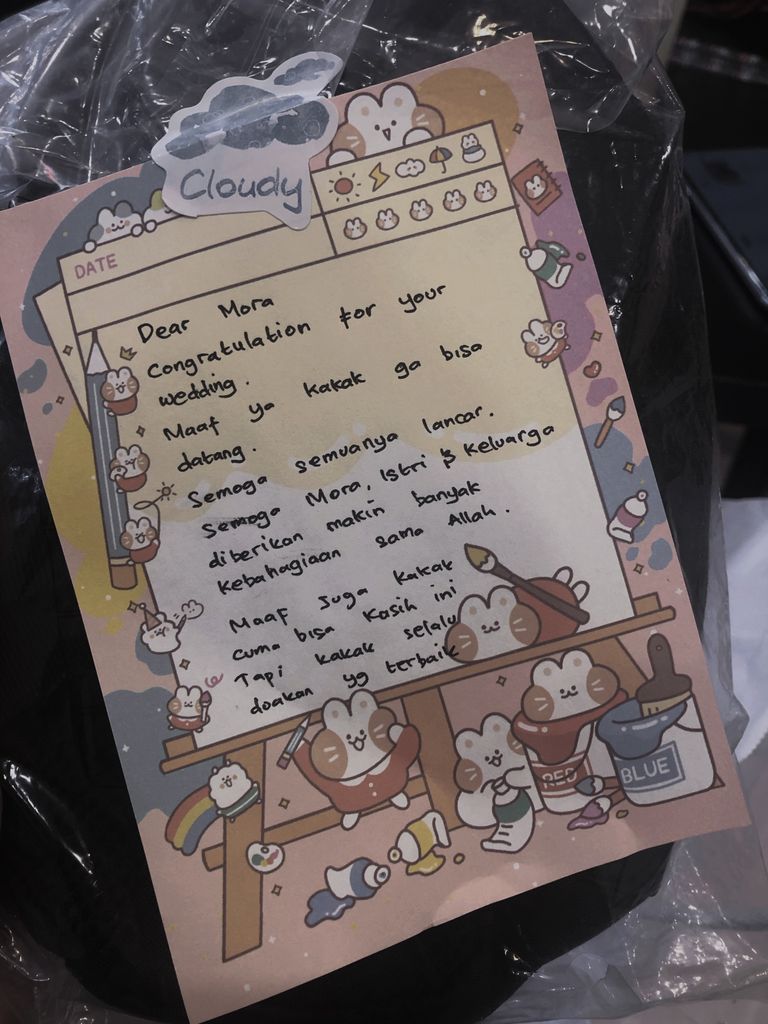 Cloudy
DATE
Dear Mora
Congratulation for your
wedding.
Maaf ya kakak ga bisa
datang.
Semoga semuanya lancar.
Semoga Mora, Istri & Keluarga
diberikan makin banyak
kebahagiaan sama Allah.
Maaf Juga Kakak
cuma bisa kasih ini
Tapi kakak selalu
doakan yg terbaik
RED
BLUE